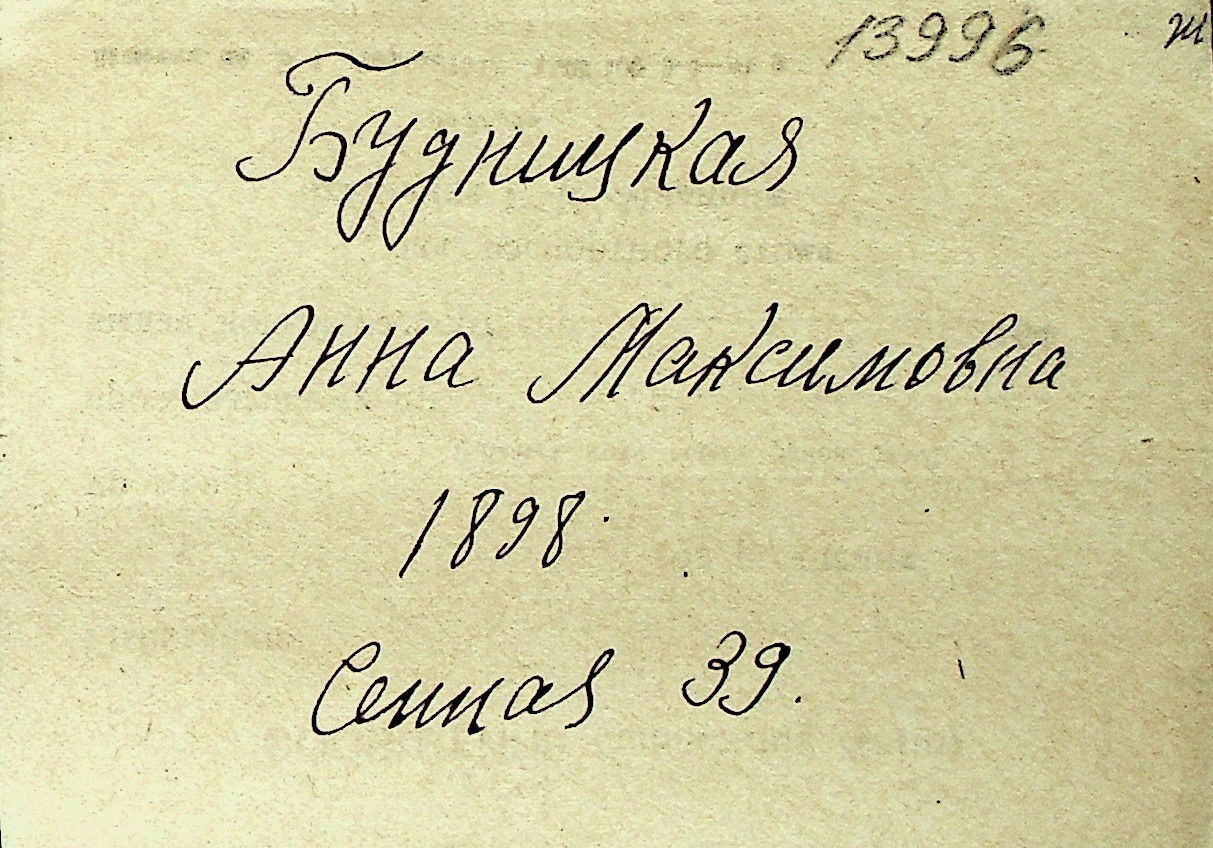 13996 ж
Будницкая
Анна Максимовна
1898.
Сенная 39.